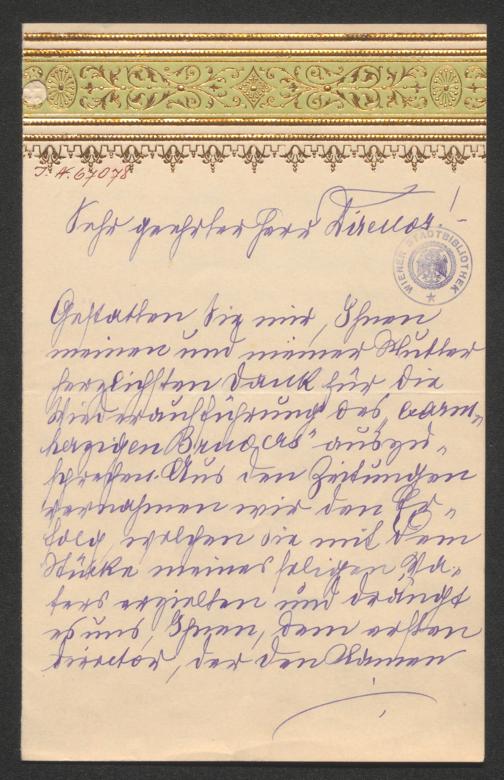 J. N. 67078
Sehr geehrter Herr Director!
WIENER STADTBIBLIOTHEK
Gestatten Sie mir, Ihnen
meinen und meiner Mutter
herzlichsten Dank für die
Wiederaufführung des „barm-
herzigen Bruders" auszu-
sprechen. Aus den Zeitungen
vernahmen wir den Er-
folg, welchen sie mit dem
Stücke meines seligen Va-
ters erzielten und drängt
es uns, Ihnen, dem ersten
Director, der den Namen